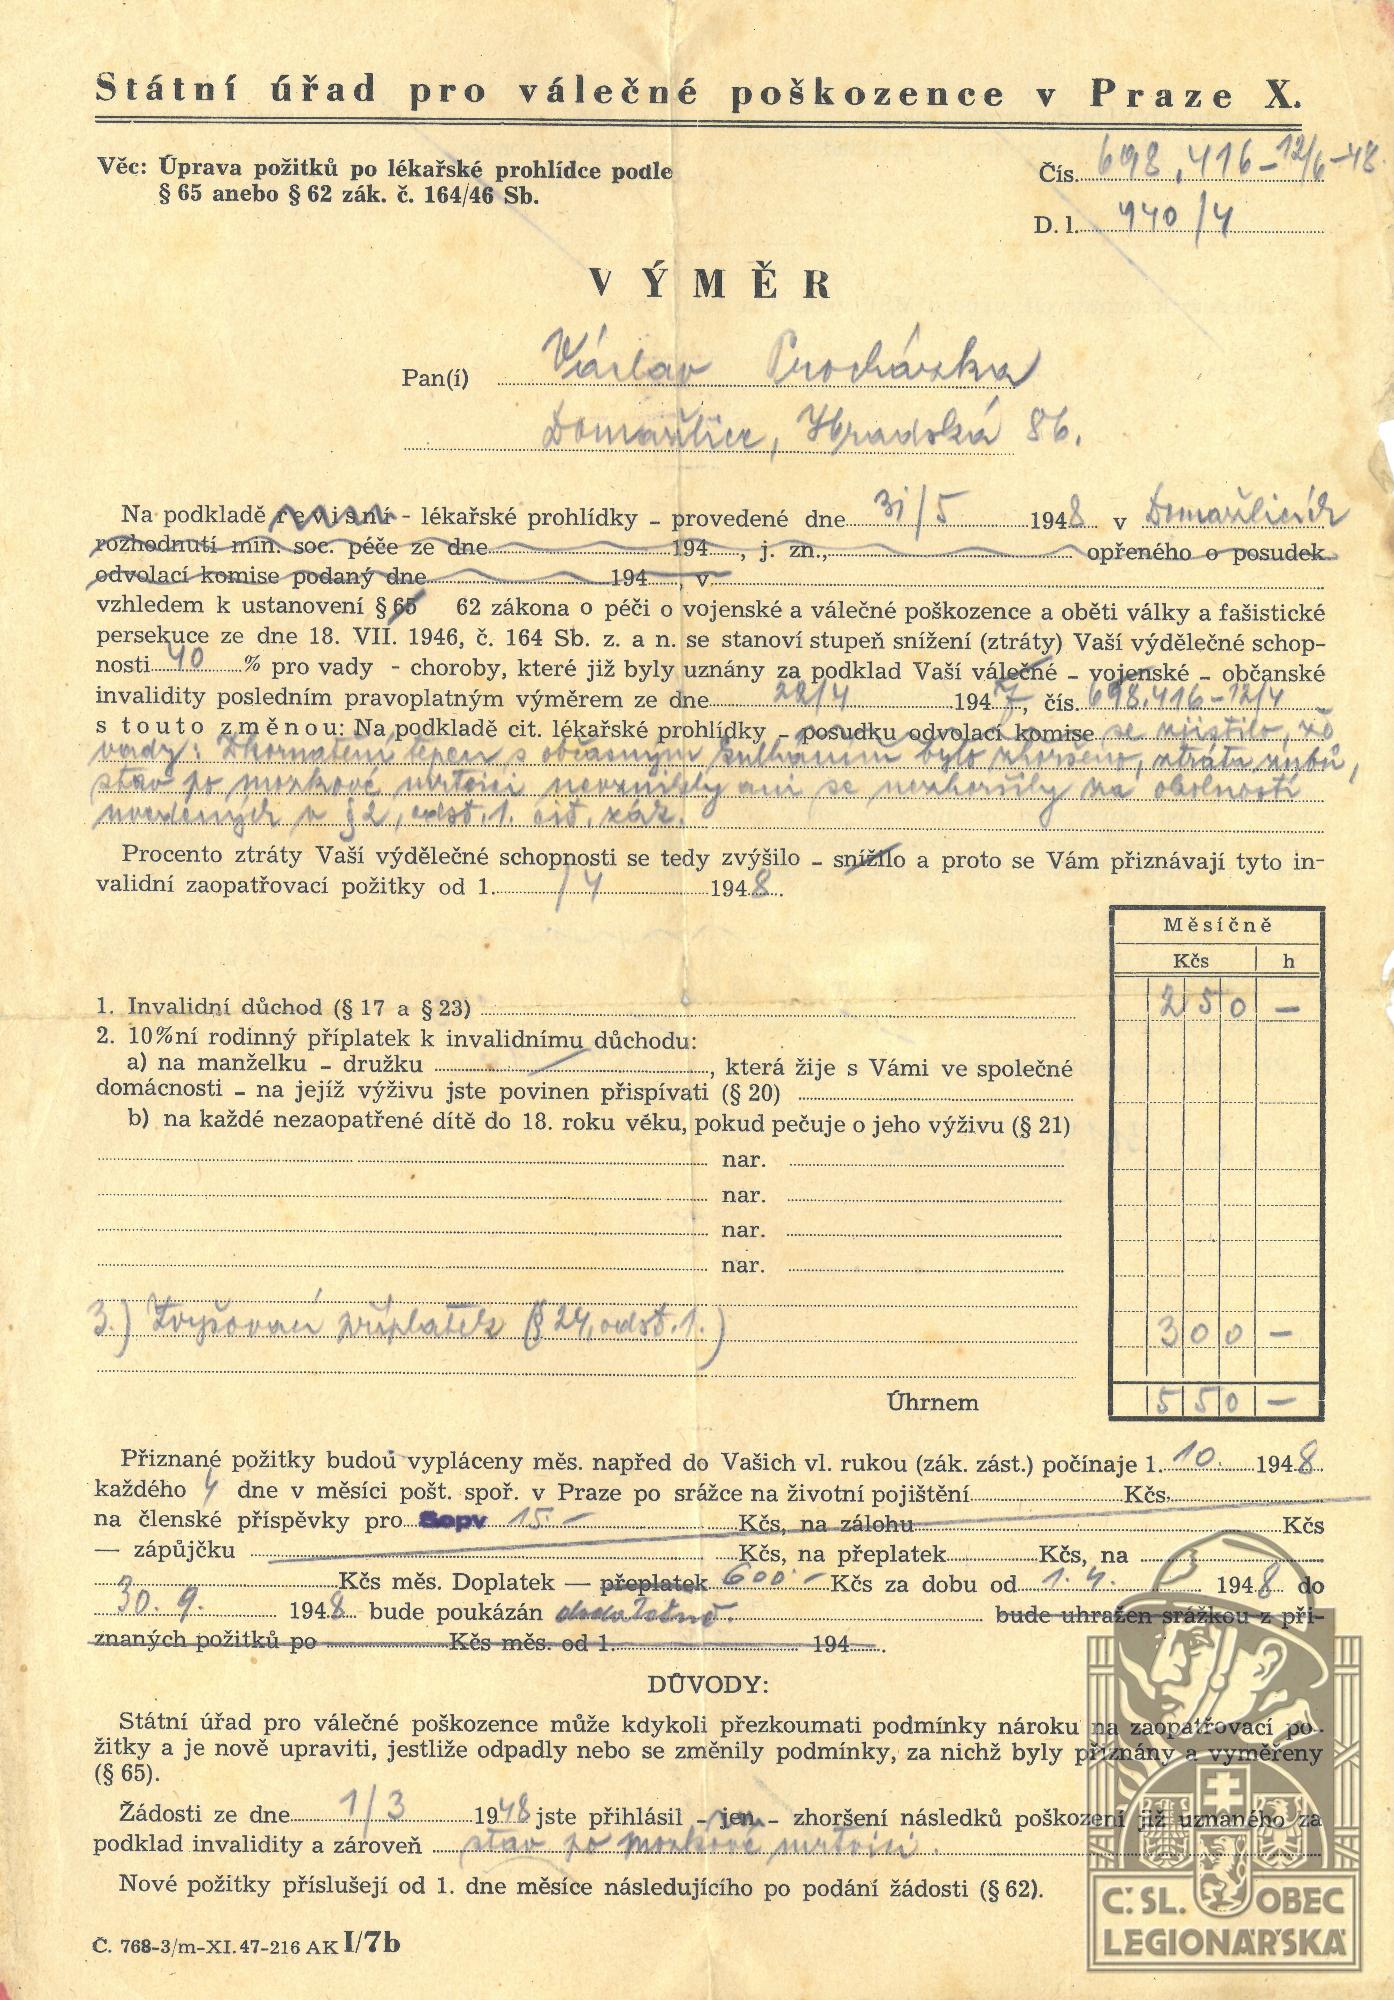 Státní úřad pro válečné poškozence v Praze X.
Věc: Úprava požitků po lékařské prohlídce podle
§ 65 anebo § 62 zák. č. 164/46 Sb.
Čís. 698.416-12/6-48
D. l. 940/4
VÝMĚR
Pan(í) Václav Procházka
Domažlice, Hradská 86.
Na podkladě revisní - lékařské prohlídky - provedené dne 31/5 1948 v Domažlicích
rozhodnutí min. soc. péče ze dne 194 , j. zn., opřeného o posudek
odvolací komise podaný dne 194 , v
vzhledem k ustanovení § 65 62 zákona o péči o vojenské a válečné poškozence a oběti války a fašistické
persekuce ze dne 18. VII. 1946, č. 164 Sb. z. a n. se stanoví stupeň snížení (ztráty) Vaší výdělečné schop-
nosti 40 % pro vady - choroby, které již byly uznány za podklad Vaší válečné - vojenské - občanské
invalidity posledním pravoplatným výměrem ze dne 22/4 1947, čís. 698.416-12/4
s touto změnou: Na podkladě cit. lékařské prohlídky - posudku odvolací komise se zjistilo, že
vady: Zkornatění tepen s občasným kulháním bylo zhoršeno, ztráta zubů,
stav po mozkové mrtvici nevznikly ani se nezhoršily za okolností
uvedených v § 2, odst. 1. cit. zák.
Procento ztráty Vaší výdělečné schopnosti se tedy zvýšilo - snížilo a proto se Vám přiznávají tyto in-
validní zaopatřovací požitky od 1. /4 1948.
Měsíčně
Kčs h
1. Invalidní důchod (§ 17 a § 23) 250 —
2. 10%ní rodinný příplatek k invalidnímu důchodu:
a) na manželku - družku , která žije s Vámi ve společné
domácnosti - na jejíž výživu jste povinen přispívati (§ 20)
b) na každé nezaopatřené dítě do 18. roku věku, pokud pečuje o jeho výživu (§ 21)
nar.
nar.
nar.
nar.
3.) Zvyšovací příplatek (§ 24, odst. 1.) 300 —
Úhrnem 550 —
Přiznané požitky budou vypláceny měs. napřed do Vašich vl. rukou (zák. zást.) počínaje 1. 10. 1948
každého 4 dne v měsíci pošt. spoř. v Praze po srážce na životní pojištění Kčs
na členské příspěvky pro Sopv 15.- Kčs, na zálohu Kčs
— zápůjčku Kčs, na přeplatek Kčs, na
Kčs měs. Doplatek — přeplatek 600.- Kčs za dobu od 1. 4. 1948 do
30. 9. 1948 bude poukázán dodatečně. bude uhražen srážkou z při-
znaných požitků po Kčs měs. od 1. 194 .
DŮVODY:
Státní úřad pro válečné poškozence může kdykoli přezkoumati podmínky nároku na zaopatřovací po-
žitky a je nově upraviti, jestliže odpadly nebo se změnily podmínky, za nichž byly přiznány a vyměřeny
(§ 65).
Žádosti ze dne 1/3 1948 jste přihlásil - jen - zhoršení následků poškození již uznaného za
podklad invalidity a zároveň stav po mozkové mrtvici.
Nové požitky příslušejí od 1. dne měsíce následujícího po podání žádosti (§ 62).
Č. 768-3/m-XI. 47-216 AK I/7b
Č.SL. OBEC
LEGIONÁŘSKÁ